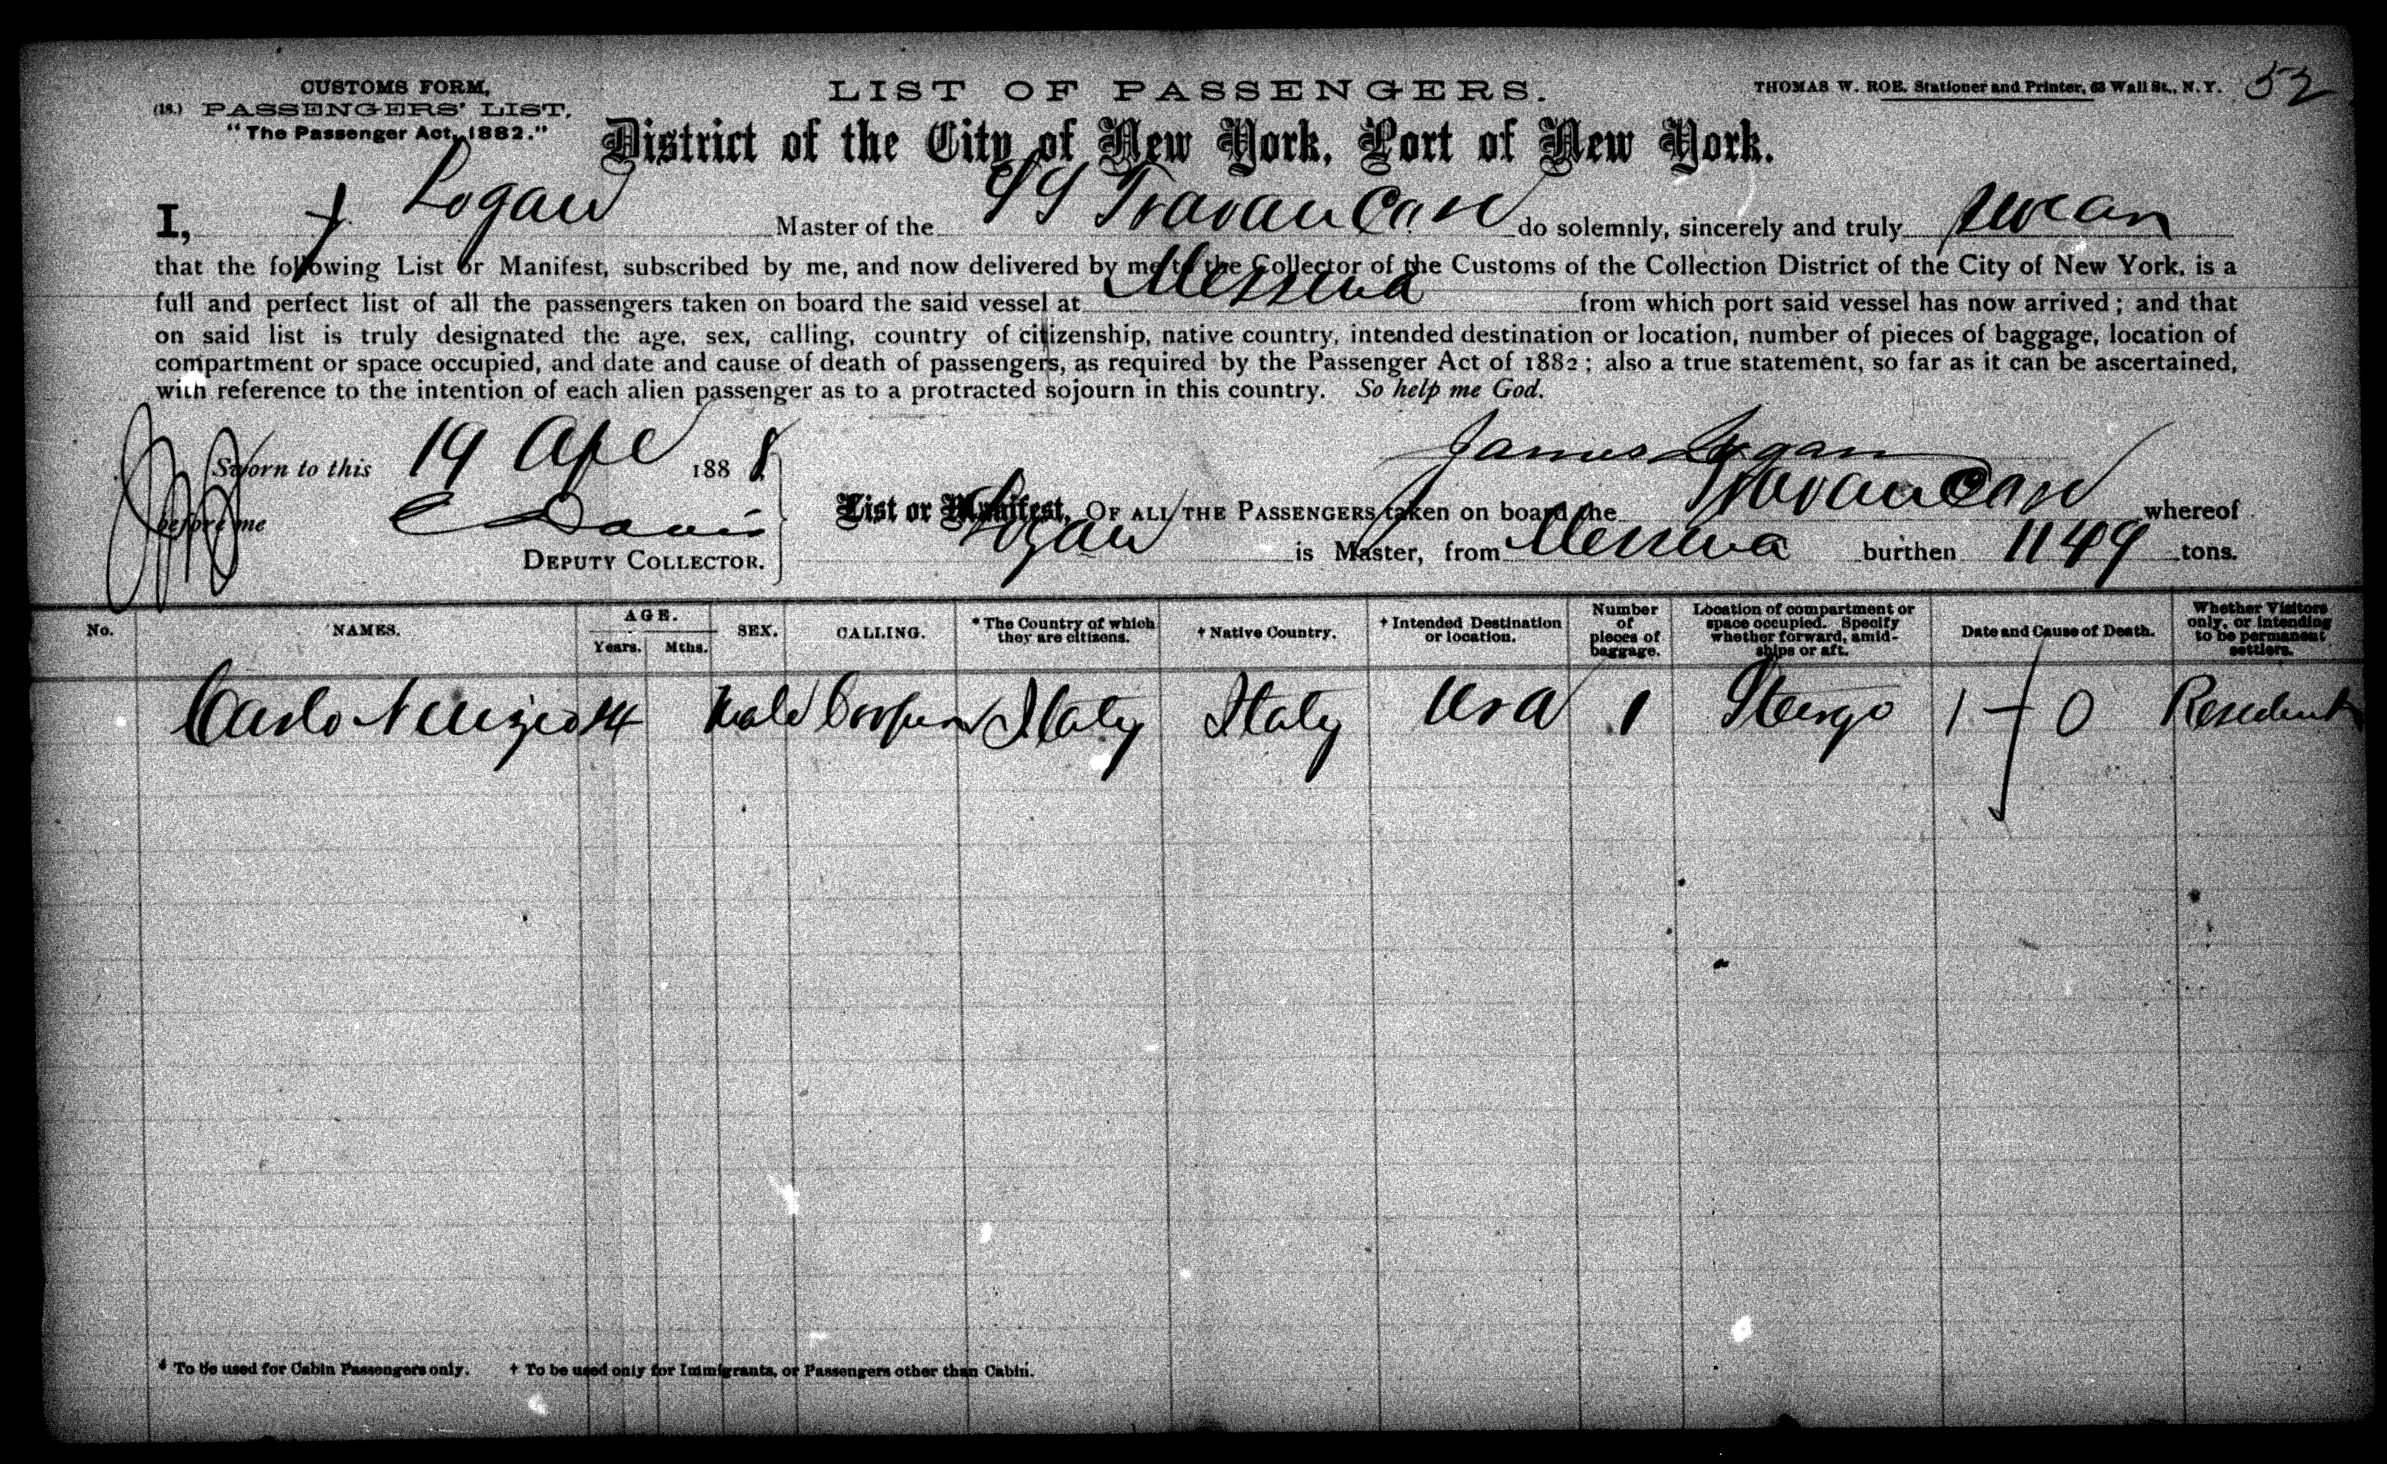 CUSTOMS FORM,
(18.) PASSENGERS' LIST.
"The Passenger Act, 1882."
LIST OF PASSENGERS.
THOMAS W. ROE, Stationer and Printer, 63 Wall St., N. Y. 52
District of the City of New York, Port of New York.
I, J Logan Master of the SS Travancore do solemnly, sincerely and truly swear
that the following List or Manifest, subscribed by me, and now delivered by me to the Collector of the Customs of the Collection District of the City of New York, is a
full and perfect list of all the passengers taken on board the said vessel at Messina from which port said vessel has now arrived; and that
on said list is truly designated the age, sex, calling, country of citizenship, native country, intended destination or location, number of pieces of baggage, location of
compartment or space occupied, and date and cause of death of passengers, as required by the Passenger Act of 1882; also a true statement, so far as it can be ascertained,
with reference to the intention of each alien passenger as to a protracted sojourn in this country. So help me God.
Sworn to this 19 Apl 1888
James Logan
before me C Davis
DEPUTY COLLECTOR.
List or Manifest, OF ALL THE PASSENGERS taken on board the Travancore whereof
J Logan is Master, from Messina burthen 1149 tons.
No. NAMES. AGE. Years. Mths. SEX. CALLING. *The Country of which they are citizens. † Native Country. † Intended Destination or location. Number of pieces of baggage. Location of compartment or space occupied. Specify whether forward, amidships or aft. Date and Cause of Death. Whether Visitors only, or intending to be permanent settlers.
Carlo 14 Male Italy Italy USA 1 1 0 Resident
* To be used for Cabin Passengers only. † To be used only for Immigrants, or Passengers other than Cabin.